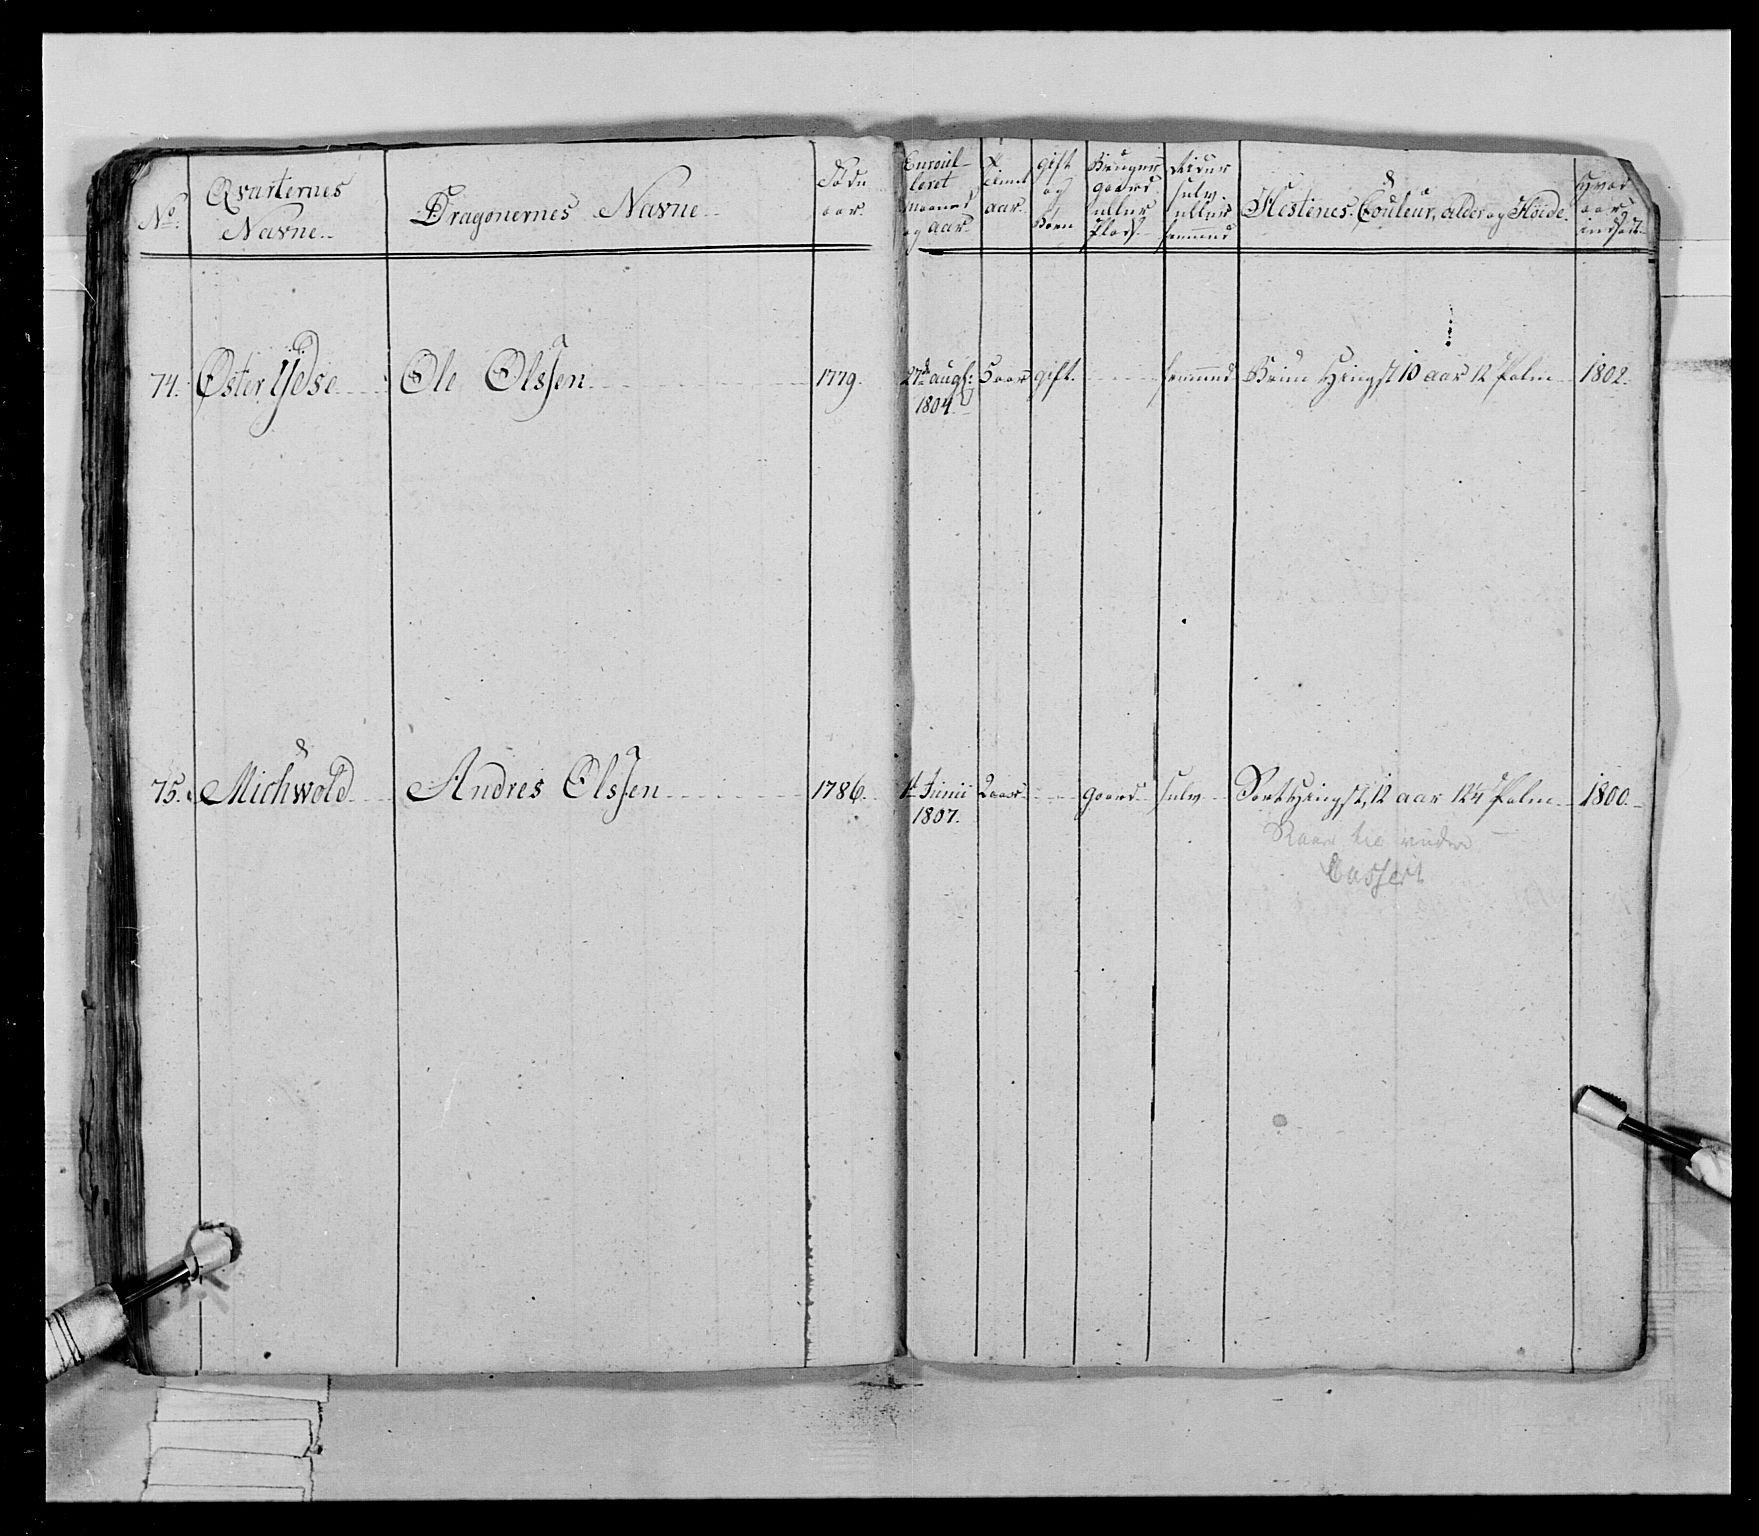 No.
Qvarternes
Navne
Dragonernes Navne
Føde
aar.
Enroul-
leret
Maaned
og aar
tient
aar
gift
og
Børn
Bruger
gaard
eller
Plads
Rider
selv
eller
fremmed
Hestenes Couleur, alder og Høide.
hvad
aar
indsadt
74. Øster Ydse Ole Olssen 1779. 27de augs: 5 aar gift fremmed Brun Hingst 10 aar 12 Palm 1802.
1804.
75. Michwold Andres Olssen 1786. 1te Junii 2 aar gaard selv Sort Hingst, 12 aar 12¼ Palm 1800.
1807.
Cassert